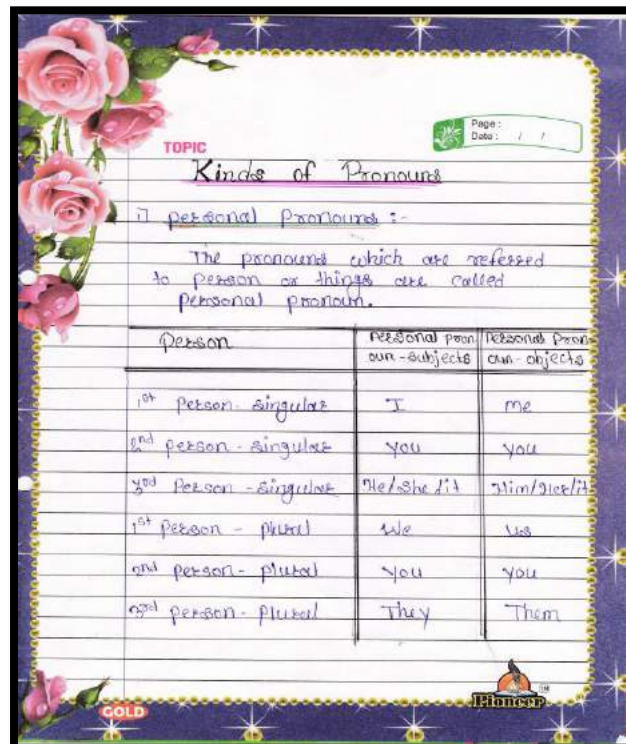 Page :
Date : / /
TOPIC
Kinds of Pronouns
i) personal Pronouns :-
The pronouns which are referred
to person or things are called
personal pronoun.
Person
Personal pron
oun-subjects
Personal Pron
oun-objects
1st Person - singular I me
2nd person - singular you you
3rd Person - singular He/she/it Him/Her/it
1st Person - plural We us
2nd person - plural you you
3rd person - Plural They Them
GOLD
Pioneer